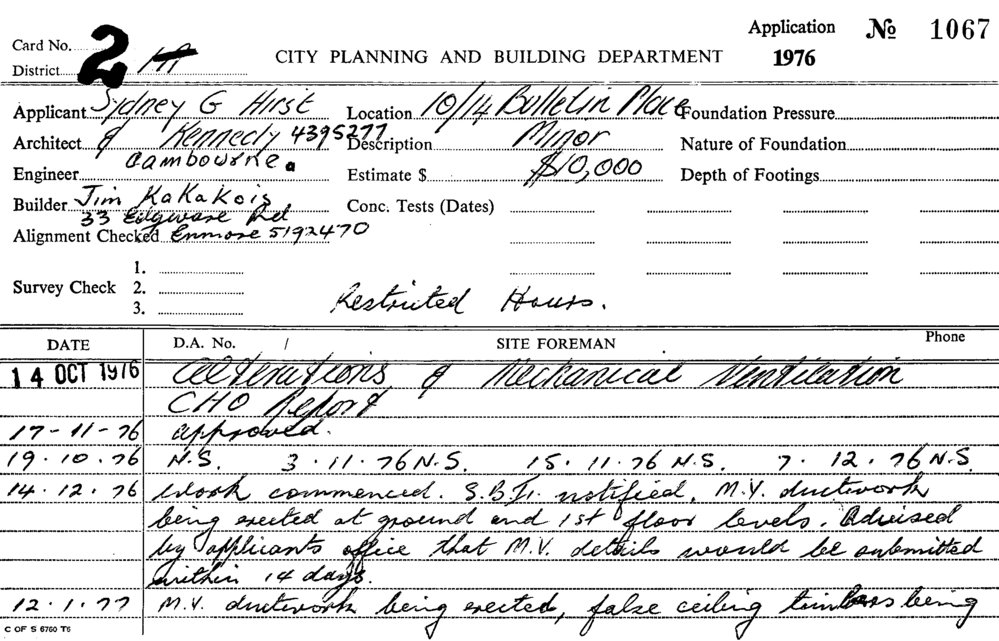 Card No. 2 Application № 1067
District CITY PLANNING AND BUILDING DEPARTMENT 1976
Applicant Sydney G Hirst Location 10/14 Bulletin Place Foundation Pressure
Architect & Kennedy 4395277 Description Minor Nature of Foundation
Engineer Cambourne Estimate $ $10,000 Depth of Footings
Builder Jim KaKaKois Conc. Tests (Dates)
33 Edgware Rd
Alignment Checked Enmore 5192470
1.
Survey Check 2.
3. Restricted Hours.
DATE D.A. No. / SITE FOREMAN Phone
14 OCT 1976 Alterations & Mechanical Ventilation
CHO Report
17-11-76 approved.
19.10.76 N.S. 3.11.76 N.S. 15.11.76 N.S. 7.12.76 N.S.
14.12.76 Work commenced. S.B.I. notified. M.V. ductwork
being erected at ground and 1st floor levels. Advised
by applicants office that M.V. details would be submitted
within 14 days.
12.1.77 M.V. ductwork being erected, false ceiling timbers being
C OF S 6760 T6